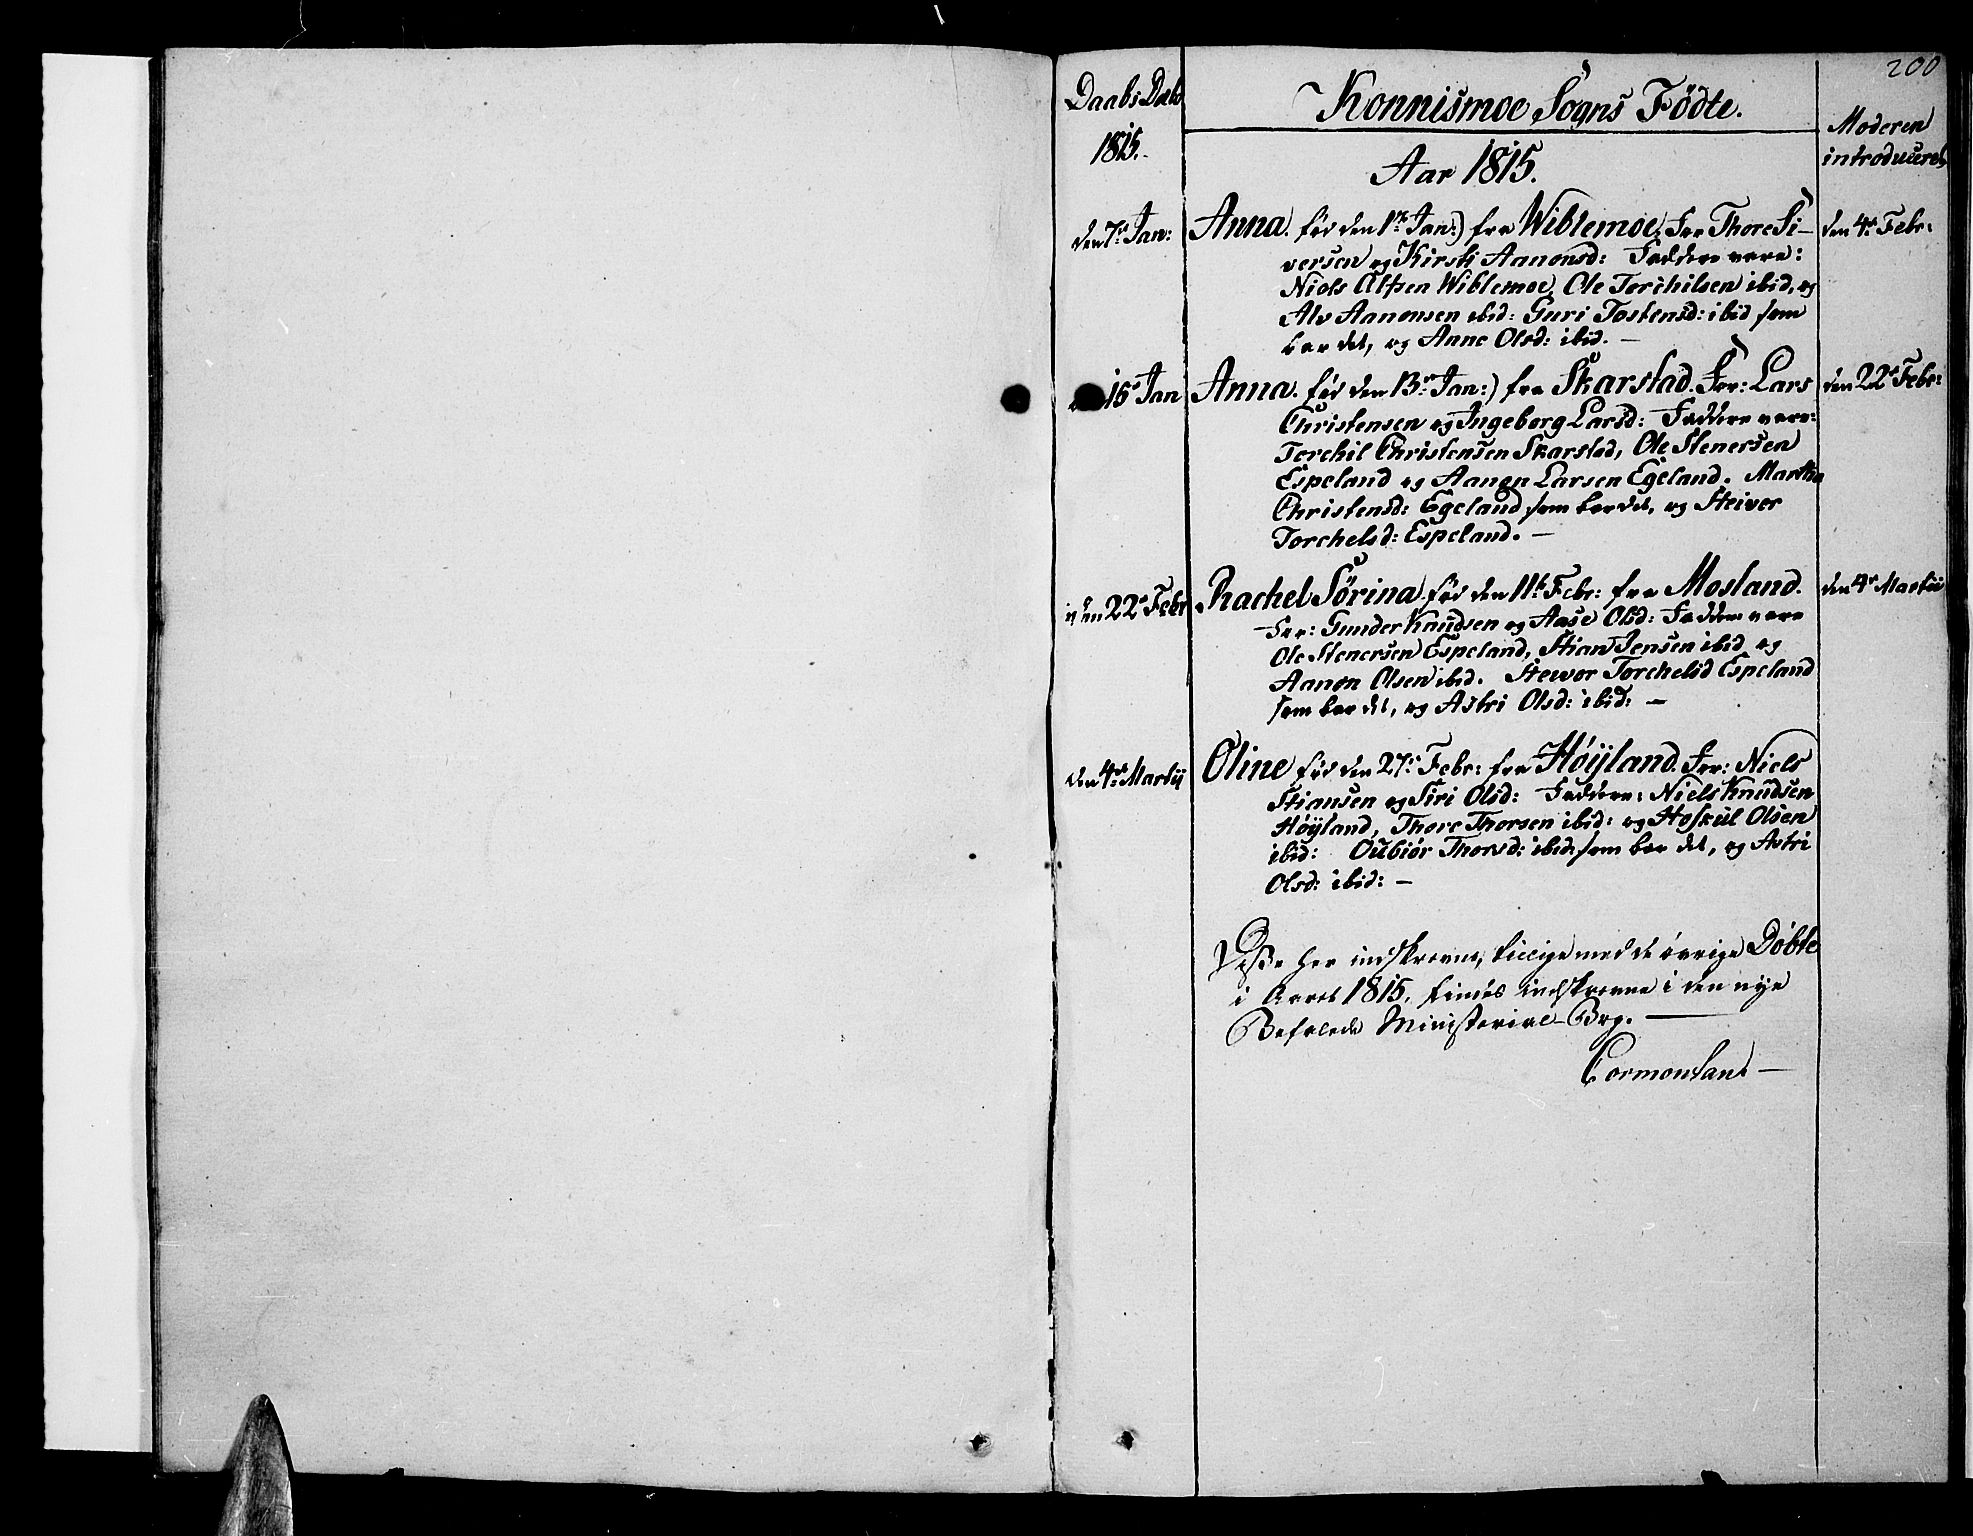 200
Daabs Dat:
1815.
Konnismoe Sogns Fødte.
Moderen
introduceret
Aar 1815.
den 7de Jan: Anna. fød den 1te Jan:) fra Wiblemoe. For: Thore Si- den 4de Febr:
versen og Kirsti Aanonsd: Faddere vare:
Niels Alfsen Wiblemoe, Ole Torchilsen ibid, og
Alv Aanonsen ibid: Guri Tostensd: ibid som
bar det, og Anne Olsd: ibid. —
15de Jan Anna. fød den 13de Jan:) fra Skarstad. For: Lars den 22de Febr:
Christensen og Ingeborg Larsd: Faddere vare:
Torchil Christensen Skarstad, Ole Stenersen
Espeland og Aanon Larsen Egeland. Martha
Christensd: Egeland som bar det, og Steiver
Torchelsd: Espeland. —
den 22de Febr Rachel Sørina. fød den 11te Febr: fra Mosland. den 4de Martii
For: Gunder Knudsen og Aase Olsd: Faddere vare
Ole Stenersen Espeland, Stian Jensen ibid og
Aanon Olsen ibid. Stewor Torchelsd Espeland
som bar det, og Astri Olsd: ibid: —
den 4de Martij Oline fød den 27de Febr: fra Høÿland. For: Niels
Stiansen og Siri Olsd: Faddere: Niels Knudsen
Høÿland, Thore Thorsen ibid: og Hoskul Olsen
ibid: Oubiör Thorsd: ibid: som bar det, og Astri
Olsd: ibid: —
Disse her indskrevne, tillige med de øvrige Döbte
i Aaret 1815, findes indskrevne i den nye
Befalede Ministerial-Bog. —
Cormontan —